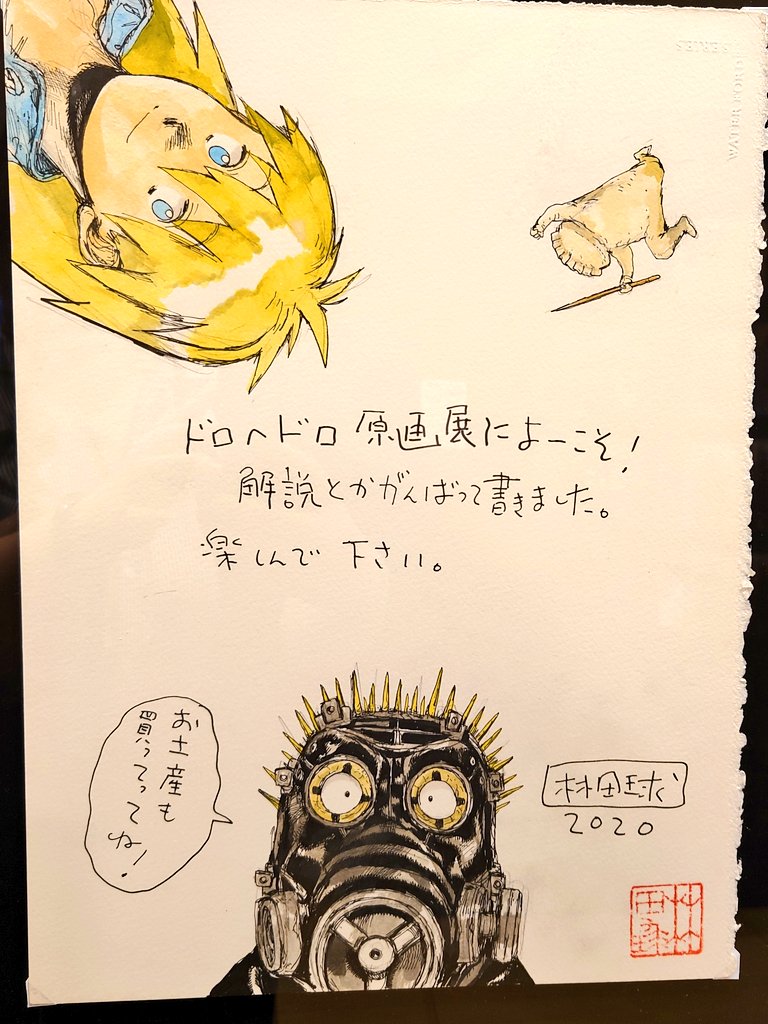 ドロヘドロ 原画展によーこそ!
解説とかがんばって書きました。
楽しんで下さい。
お土産も
買ってってね!
林田球
2020